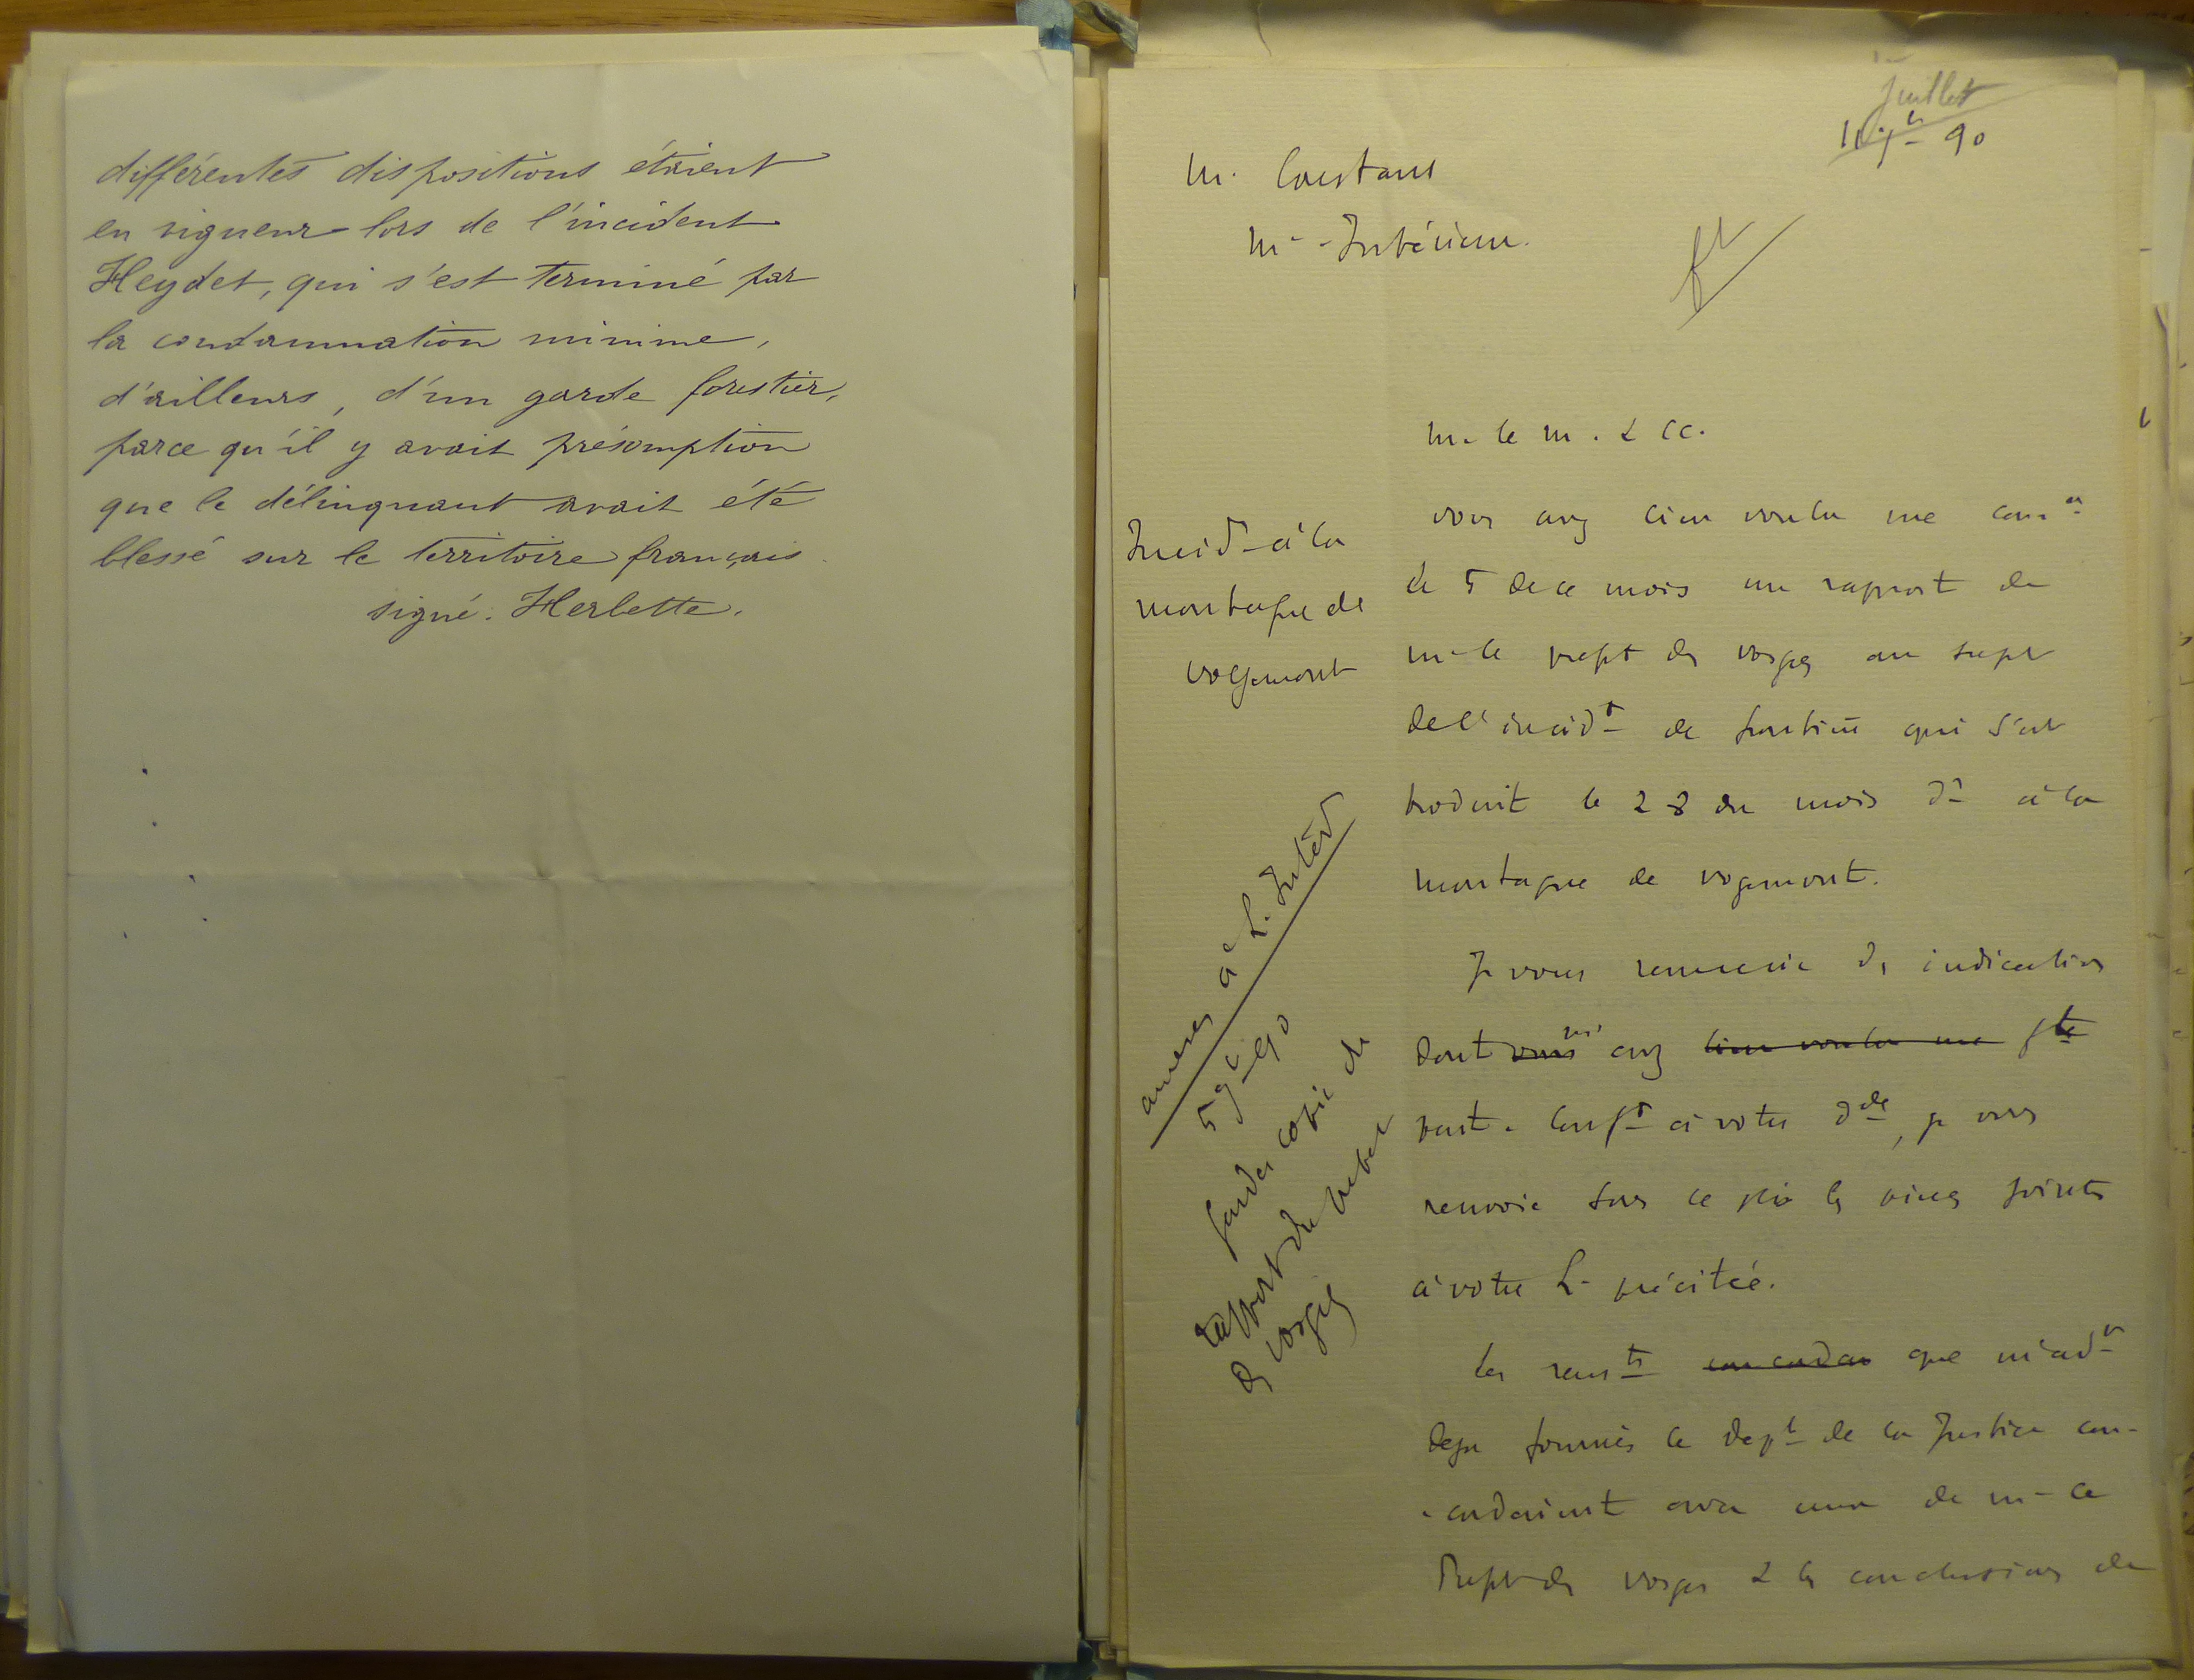 différentes dispositions étaient
en vigueur lors de l'incident
Heydet, qui s'est terminé par
la condamnation minime,
d'ailleurs, d'un garde forestier,
parce qu'il y avait présomption
que le délinquant avait été
blessé sur le territoire français.
signé: Herbette.
Juillet
90
M. Constans
Mre Intérieur.
M. le M. & cc.
Incidt à la
montagne de
vogemont
vous avez bien voulu me comer
le 5 de ce mois un rapport de
M. le préft des vosges au sujet
de l'incidt de frontière qui s'est
produit le 28 du mois dr à la
montagne de vogemont.
Je vous remercie des indications
dont vous avez bien voulu me
part. Conft à votre dde, je vous
renvoie sous ce pli les pièces jointes
à votre L. précitée.
Les rensts concordan que m'avt
deja fournis le dept de la Justice con-
-cordaient avec ceux de M. le
Préft des vosges & les conclusions de
annexes à L. Intér
5 90
garder copie du
rapport du préfet
des vosges